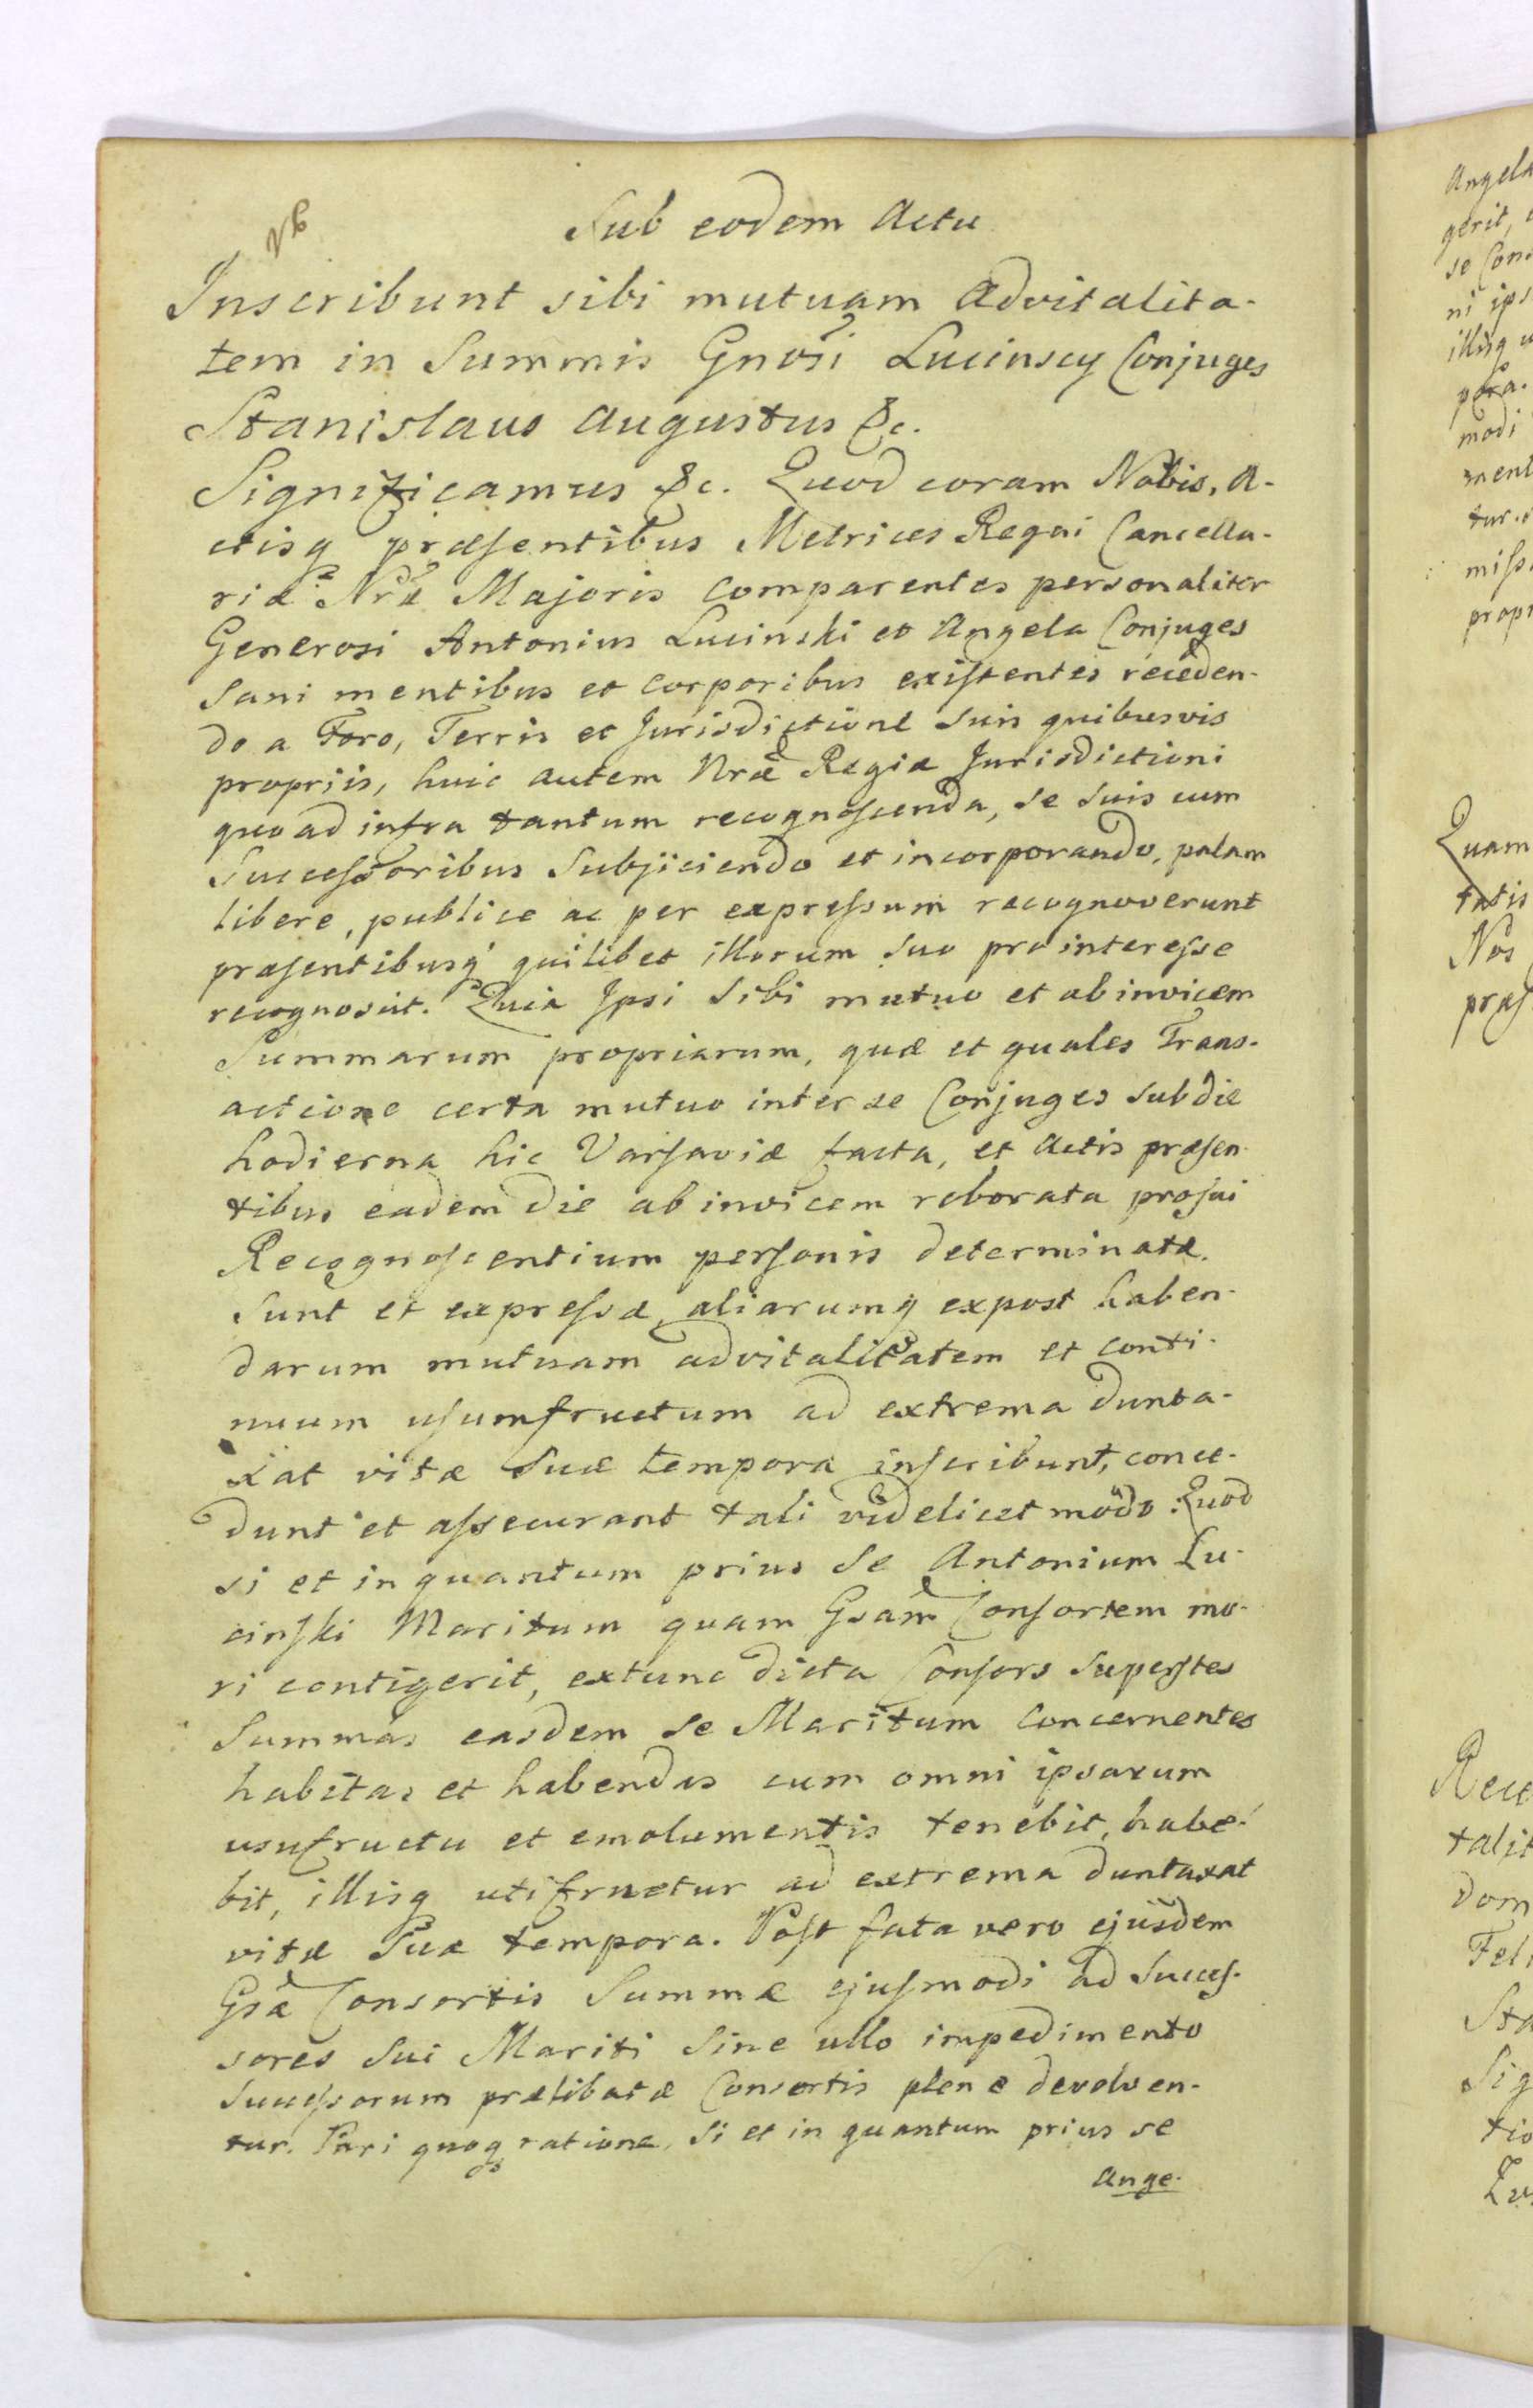 Nb
Sub eodem Actu
Inscribunt sibi mutuam Advitalita-
tem in Summis Gnosi Lucinscy Conjuges
Stanislaus Augustus &c.
Significamus &c. Quod coram Nobis, A-
ctisq præsentibus Metrices Regni Cancella-
riæ Nræ Majoris comparentes personaliter
Generosi Antonius Lucinski et Angela Conjuges
Sani mentibus et Corporibus existentes receden-
do a Foro, Terris et Jurisdictione Suis quibusvis
propriis, huic autem Nræ Regiæ Jurisdictioni
quoad infra tantum recognoscenda, se suis cum
Successoribus Subjiciendo et incorporando, palam
libere, publice ac per expressum recognoverunt
præsentibusq quilibet illorum suo pro interesse
recognoscit. Quia Ipsi Sibi mutuo et ab invicem
Summarum propriarum, quæ et quales Trans-
actione certa mutuo inter se Conjuges sub die
hodierna hic Varsaviæ facta, et Actis præsen-
tibus eadem die ab invicem roborata pro sui
Recognoscentium personis determinatæ
Sunt et expressæ, aliarumq expost haben-
darum mutuam advitalitatem et conti-
nuum usumfructum ad extrema dunta-
xat vitæ Suæ tempora inscribunt, conce-
dunt et assecurant tali videlicet modo: Quod
si et in quantum prius Se Antonium Lu-
cinski Maritum quam Gsam Consortem mo-
ri contigerit, extunc dicta Consors Superstes
Summas easdem Se Maritum Concernentes
habitas et habendas cum omni ipsarum
usufructu et emolumentis tenebit, habe-
bit, illisq utifruetur ad extrema duntaxat
vitæ Suæ tempora. Post fata vero ejusdem
Gsæ Consortis Summæ ejusmodi ad Succes-
sores Sui Mariti Sine ullo impedimento
Successorum prælibatæ Consortis plene devolven-
tur. Pari quoq ratione, Si et in quantum prius se
Ange-